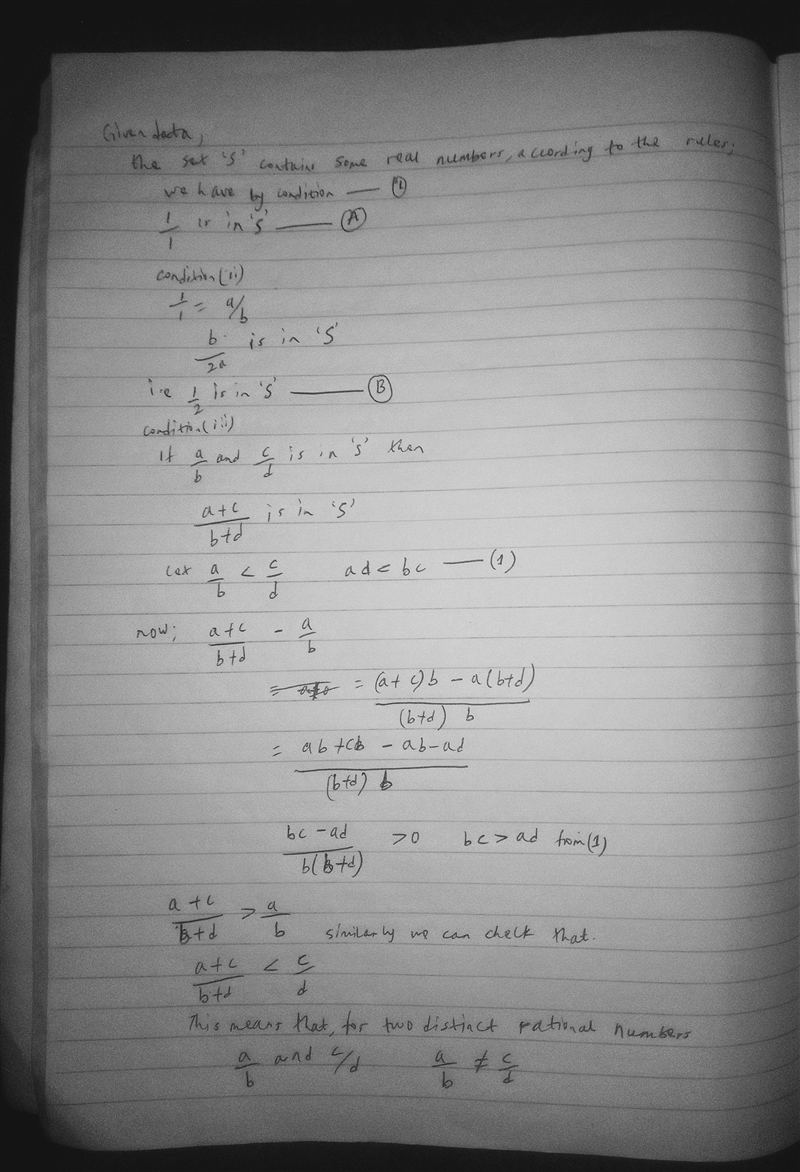 Given data,
the set 'S' contains some real numbers, according to the rules;
we have by condition — (1)
1/1 is in 'S' — (A)
condition (ii)
1/1 = a/b
b/2a is in 'S'
i.e 1/2 is in 'S' — (B)
condition (iii)
If a/b and c/d is in 'S' then
(a+c)/(b+d) is in 'S'
Let a/b < c/d ad < bc — (1)
now; (a+c)/(b+d) - a/b
= ((a+c)b - a(b+d))/((b+d) b)
= (ab + cb - ab - ad)/((b+d) b)
(bc - ad)/(b(b+d)) > 0 bc > ad from (1)
(a+c)/(b+d) > a/b similarly we can check that.
(a+c)/(b+d) < c/d
This means that, for two distinct rational numbers
a/b and c/d a/b ≠ c/d